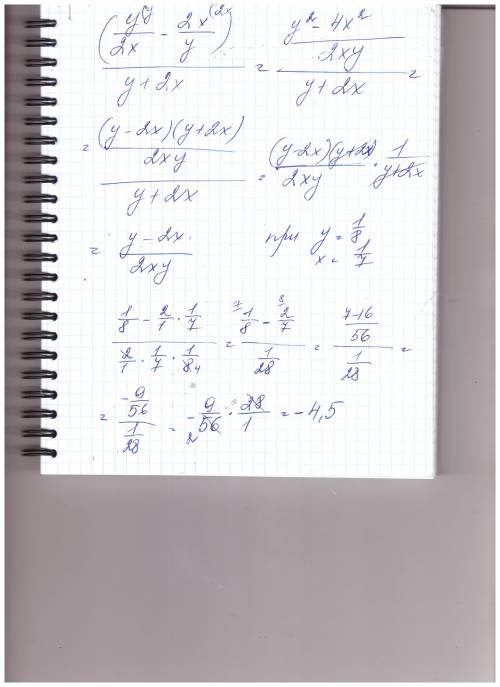 (y^(y / 2x - 2x^(2x / y) / y + 2x = y² - 4x² / 2xy / y + 2x =
= (y - 2x)(y + 2x) / 2xy / y + 2x = (y - 2x)(y + 2x) / 2xy · 1 / y + 2x
= y - 2x / 2xy при y = 1/8 x = 1/7
1/8 - 2/1 · 1/7 / 2/1 · 1/7 · 1/8 4 = 7 1/8 - 8 2/7 / 1/28 = 7-16 / 56 / 1/28 =
= -9/56 / 1/28 = - 9/56 2 · 28/1 = -4,5